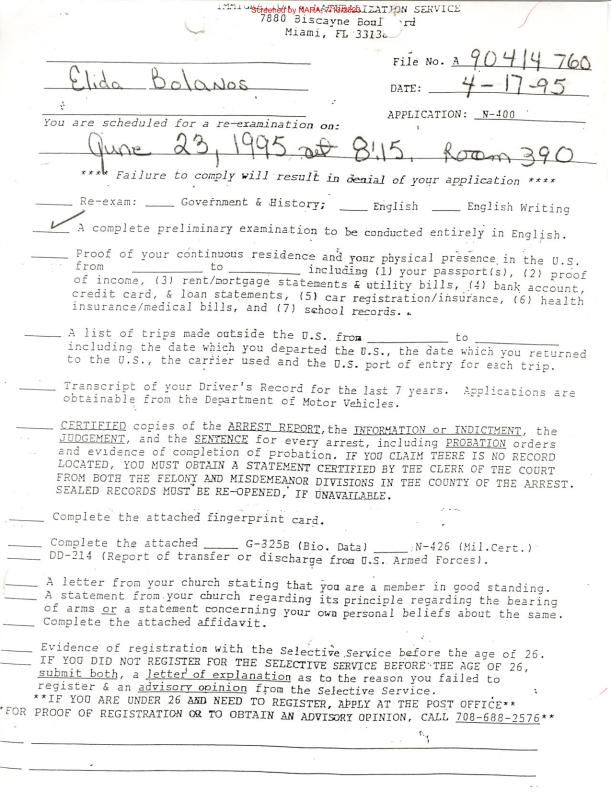 IMMIGRATION NATURALIZATION SERVICE
Screened by NARA
7880 Biscayne
Miami, FL
File No. A 90414 760
Elida Bolanos
DATE: 4-17-95
APPLICATION: N-400
You are scheduled for a re-examination on:
June 23, 1995 at 8:15. Room 390
**** Failure to comply will result in denial of your application ****
____ Re-exam: ____ Government & History; ____ English ____ English Writing
✓ A complete preliminary examination to be conducted entirely in English.
____ Proof of your continuous residence and your physical presence in the U.S.
from ____ to ____ including (1) your passport(s), (2) proof
of income, (3) rent/mortgage statements & utility bills, (4) bank account,
credit card, & loan statements, (5) car registration/insurance, (6) health
insurance/medical bills, and (7) school records.
____ A list of trips made outside the U.S. from ____ to ____
including the date which you departed the U.S., the date which you returned
to the U.S., the carrier used and the U.S. port of entry for each trip.
____ Transcript of your Driver's Record for the last 7 years. Applications are
obtainable from the Department of Motor Vehicles.
____ CERTIFIED copies of the ARREST REPORT, the INFORMATION or INDICTMENT, the
JUDGEMENT, and the SENTENCE for every arrest, including PROBATION orders
and evidence of completion of probation. IF YOU CLAIM THERE IS NO RECORD
LOCATED, YOU MUST OBTAIN A STATEMENT CERTIFIED BY THE CLERK OF THE COURT
FROM BOTH THE FELONY AND MISDEMEANOR DIVISIONS IN THE COUNTY OF THE ARREST.
SEALED RECORDS MUST BE RE-OPENED, IF UNAVAILABLE.
____ Complete the attached fingerprint card.
____ Complete the attached ____ G-325B (Bio. Data) ____ N-426 (Mil.Cert.)
____ DD-214 (Report of transfer or discharge from U.S. Armed Forces).
____ A letter from your church stating that you are a member in good standing.
____ A statement from your church regarding its principle regarding the bearing
of arms or a statement concerning your own personal beliefs about the same.
____ Complete the attached affidavit.
____ Evidence of registration with the Selective Service before the age of 26.
____ IF YOU DID NOT REGISTER FOR THE SELECTIVE SERVICE BEFORE THE AGE OF 26,
submit both, a letter of explanation as to the reason you failed to
register & an advisory opinion from the Selective Service.
**IF YOU ARE UNDER 26 AND NEED TO REGISTER, APPLY AT THE POST OFFICE**
*FOR PROOF OF REGISTRATION OR TO OBTAIN AN ADVISORY OPINION, CALL 708-688-2576**